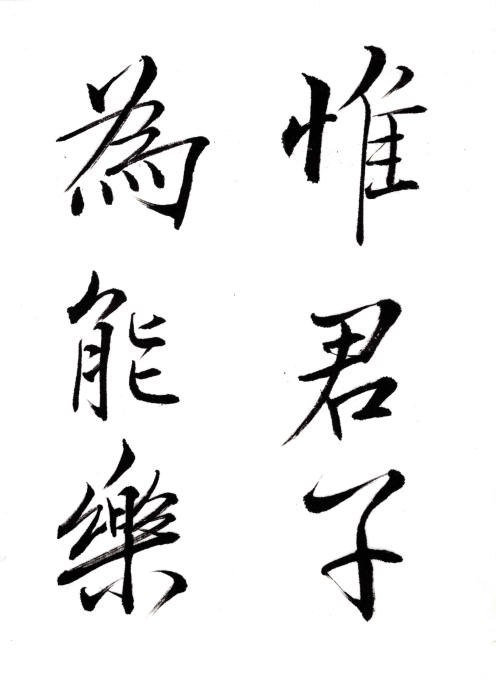 惟君子
為能樂